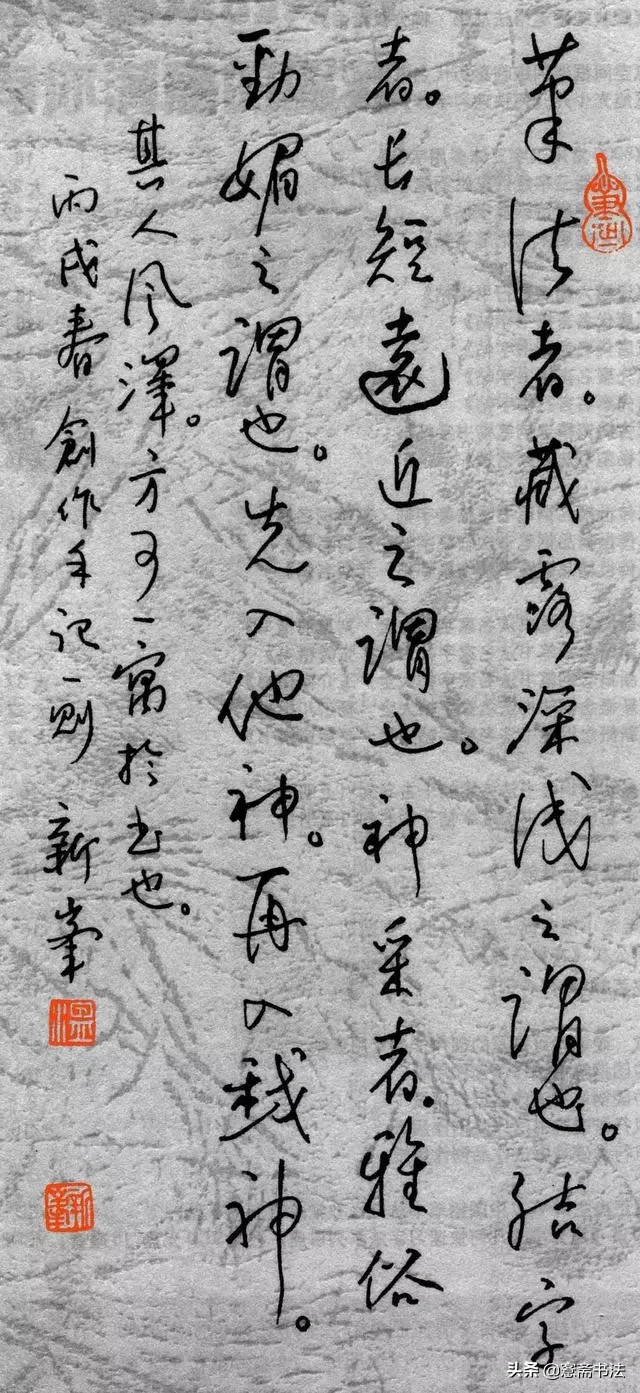 筆法者。藏露深浅之謂也。结字
者。长短遠近之謂也。神采者。雅俗
勁媚之謂也。先入他神。再入我神。
其人风澤。方可一寓於书也。
丙戌春創作手记一则 新峯
头条 @愙斋书法